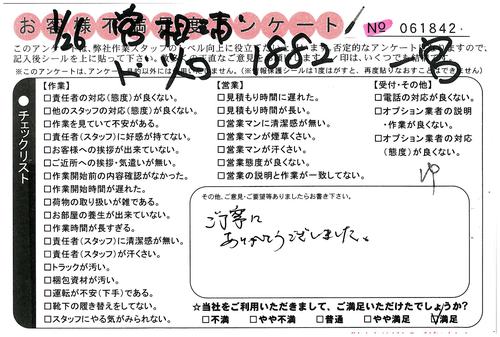 お客様不満足度アンケート No 061842
1/26
1882
このアンケートは、弊社作業スタッフのレベル向上に役立てたい
記入後シールを貼って下さい。
※このアンケートは、アンケート
【作業】
□責任者の対応（態度）が良くない。
□他のスタッフの対応（態度）が良くない。
□作業を見ていて不安がある。
□責任者（スタッフ）に好感が持てない。
□お客様への挨拶が出来ていない。
□ご近所への挨拶・気遣いが無い。
□作業開始前の内容確認がなかった。
□作業開始時間が遅れた。
□荷物の取り扱いが雑である。
□お部屋の養生が出来ていない。
□作業時間が長すぎる。
□責任者（スタッフ）に清潔感が無い。
□責任者（スタッフ）が汗くさい。
□トラックが汚い。
□梱包資材が汚い。
□運転が不安（下手）である。
□靴下の履き替えをしてない。
□スタッフにやる気がみられない。
【営業】
□見積もり時間に遅れた。
□見積もり時間が長い。
□営業マンに清潔感が無い。
□営業マンが煙草くさい。
□営業マンが汗くさい。
□営業態度が良くない。
□営業の説明と作業が一致してない。
【受付・その他】
□電話の対応が良くない。
□オプション業者の説明
・作業が良くない。
□オプション業者の対応
（態度）が良くない。
●チェックリスト
その他、ご意見・ご要望等ありましたらお書き下さい。
ご丁寧に
ありがとうございました。
☆当社をご利用いただきまして、ご満足いただけたでしょうか？
□不満 □やや不満 □普通 □やや満足 □満足